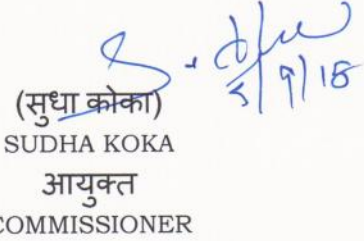 5/9/18
(सुधा कोका)
SUDHA KOKA
आयुक्त
COMMISSIONER